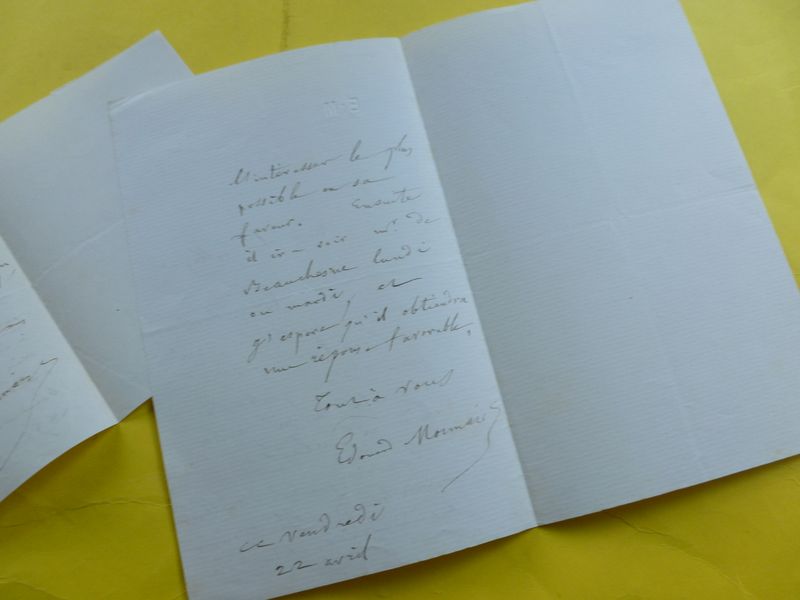 M·E
M'intéresser le plus
possible en sa
faveur. Ensuite
il ira voir mr. de
Beauchesne lundi
ou mardi, et
j'espère qu'il obtiendra
une réponse favorable,
Tout à vous
Edouard Monnais
ce vendredi
22 avril